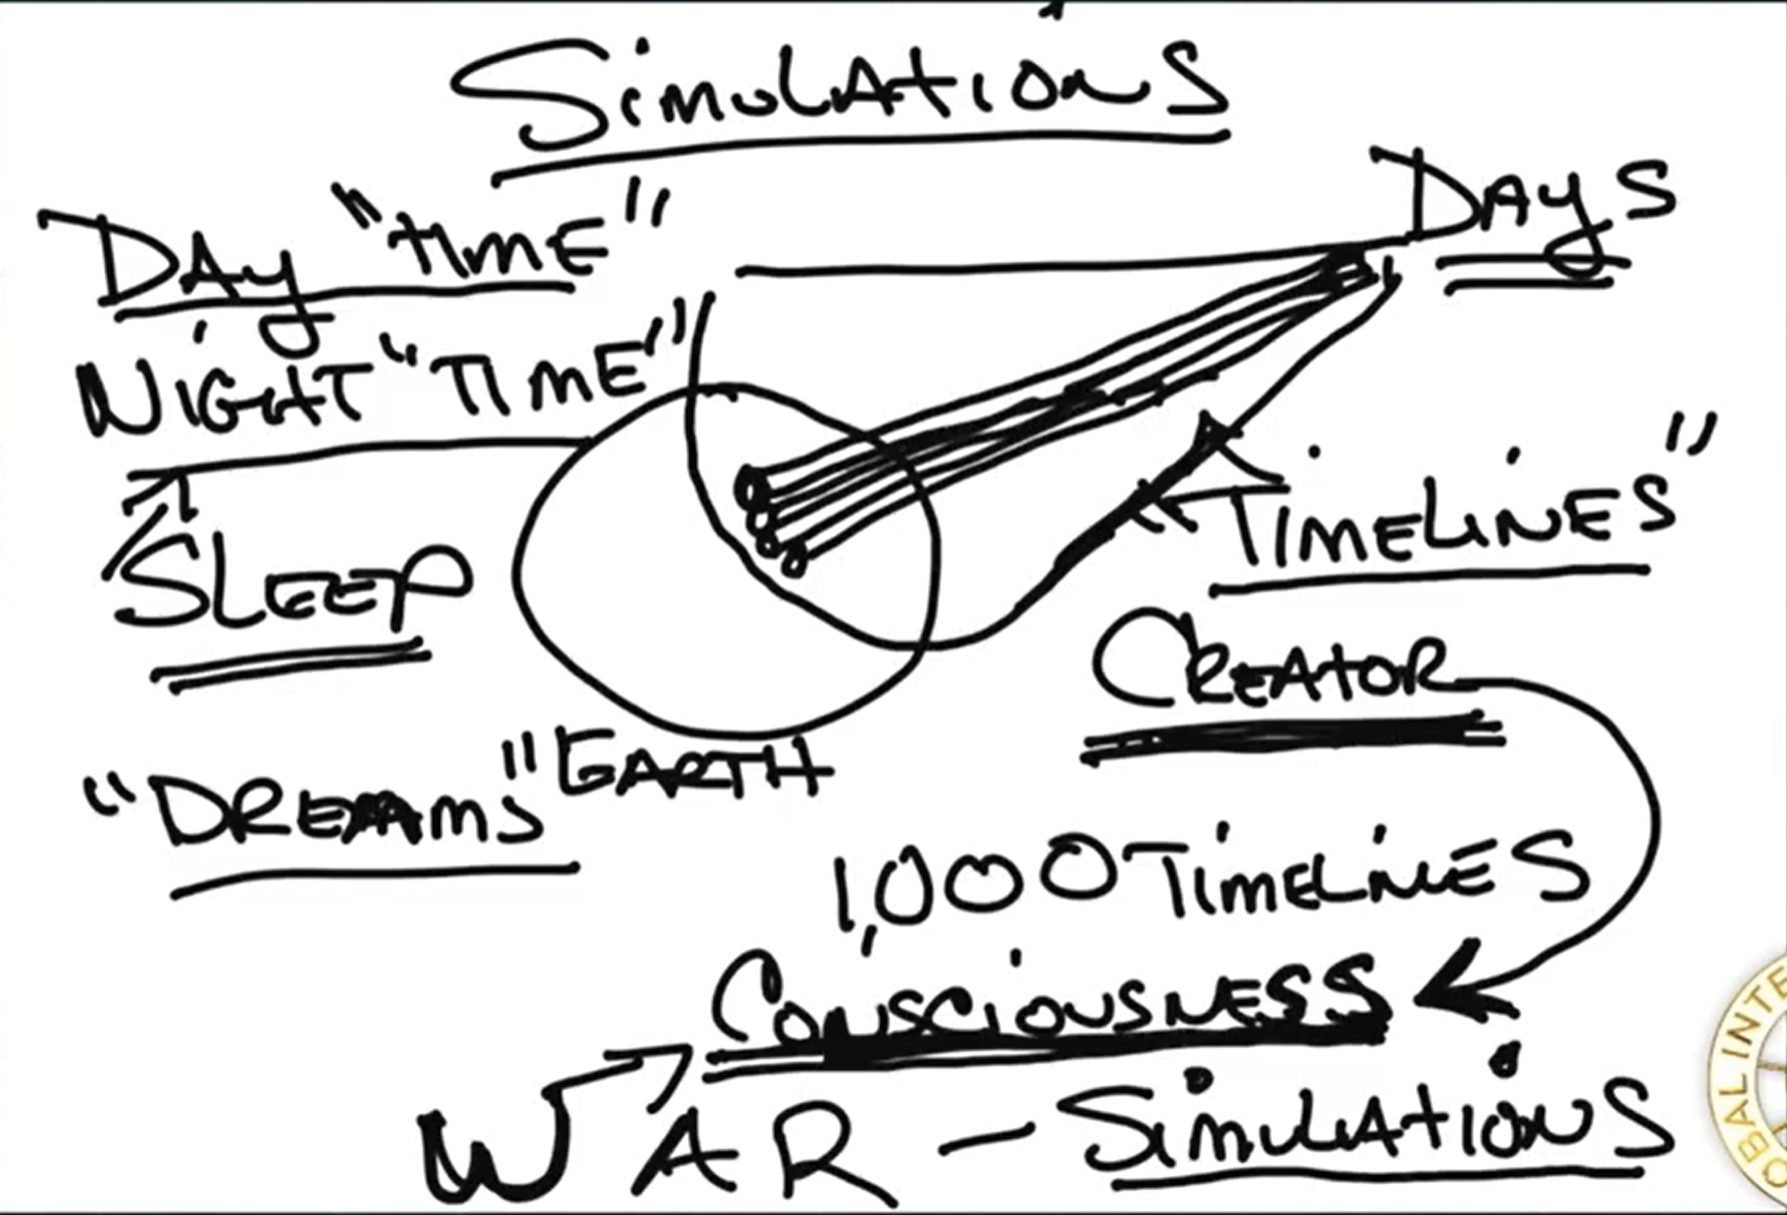 SimuLAtionS
DAy "tIME"
DAyS
NIGHT "TIME"
"TIMELINES"
SLEEP
CREAtOR
"EARTH
"DREAMS"
1,000 TIMELINES
CONSCIOUSNESS
WAR - SimuLAtionS
OBAL INTE